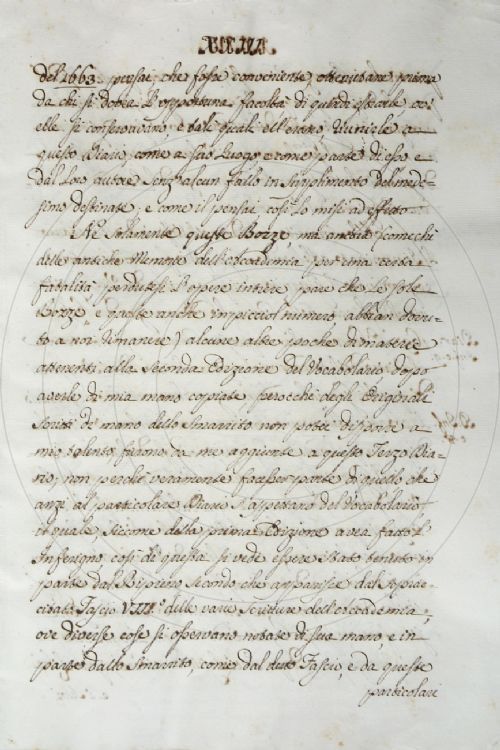 del 1663. pensai che fosse conveniente, ottenutane prima
da chi si dovea l'opportuna facoltà di quindi estrarle, ove
elle si conservavano, e tali quali ell'erano, unirle a
questo Diario, come a suo luogo e come parte di esso e
dal loro autore senz'alcun fallo in supplimento del mede-
simo destinate, e come il pensai così lo misi ad effetto.
Nè solamente queste Bozze, ma ancora (come che
delle antiche Memorie dell'Accademia per una certa
fatalità perdutesi l'opere intere pare che le sole
bozze e queste anche in picciol numero abbian dovu-
to a noi rimanere) alcune altre poche di materie
attenenti alla Seconda Edizione del Vocabolario, dopo
averle di mia mano copiate, perocchè degli Originali
scritti di mano dello Smarrito non potei disporre a
mio talento, furono da me aggiunte a questo Terzo Dia-
rio, non perchè veramente facesser parte di quello che
anzi al particolare Diario s'aspettano del Vocabolario
il quale, siccome della prima Edizione avea fatto l'
Inferigno, così di questa si vede essere stato tenuto in
parte dal Ripieno secondo che apparisce dal sopra-
citato Fascio VIII.º delle varie Scritture dell'Accademia,
ove diverse cose si osservano notate di sua mano, e in
parte dallo Smarrito, come dal detto Fascio, e da queste
particolari